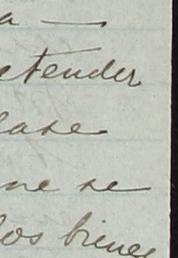 a —
etender
lase
ne se
los bienes